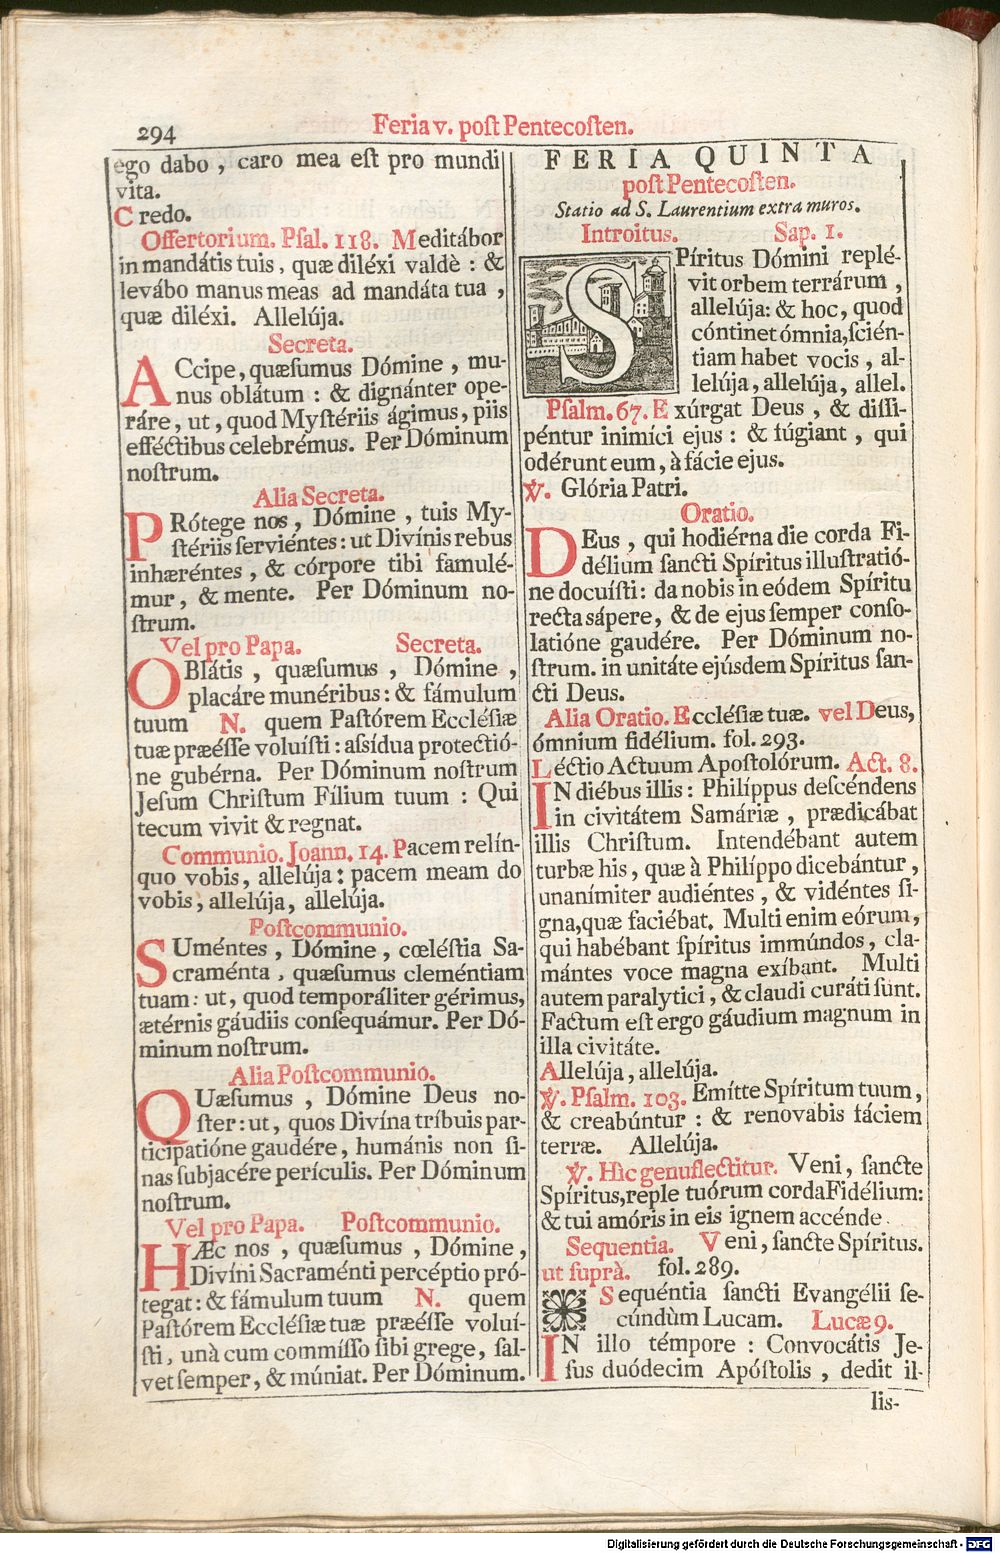 294
Feria v. post Pentecosten.
ego dabo, caro mea est pro mundi
vita.
Credo.
Offertorium. Psal. 118. Meditábor
in mandátis tuis, quæ diléxi valdè: &
levábo manus meas ad mandáta tua,
quæ diléxi. Allelúja.
Secreta.
ACcipe, quæsumus Dómine, mu-
nus oblátum: & dignánter ope-
ráre, ut, quod Mystériis ágimus, piis
efféctibus celebrémus. Per Dóminum
nostrum.
Alia Secreta.
PRótege nos, Dómine, tuis My-
stériis serviéntes: ut Divínis rebus
inhæréntes, & córpore tibi famulé-
mur, & mente. Per Dóminum no-
strum.
Vel pro Papa. Secreta.
OBlátis, quæsumus, Dómine,
placáre munéribus: & fámulum
tuum N. quem Pastórem Ecclésiæ
tuæ præésse voluísti: assídua protectió-
ne gubérna. Per Dóminum nostrum
Jesum Christum Fílium tuum: Qui
tecum vivit & regnat.
Communio. Joann. 14. Pacem relín-
quo vobis, allelúja: pacem meam do
vobis, allelúja, allelúja.
Postcommunio.
SUméntes, Dómine, cœléstia Sa-
craménta, quæsumus cleméntiam
tuam: ut, quod temporáliter gérimus,
ætérnis gáudiis consequámur. Per Dó-
minum nostrum.
Alia Postcommunio.
QUæsumus, Dómine Deus no-
ster: ut, quos Divína tríbuis par-
ticipatióne gaudére, humánis non si-
nas subjacére perículis. Per Dóminum
nostrum.
Vel pro Papa. Postcommunio.
HÆc nos, quæsumus, Dómine,
Divíni Sacraménti percéptio pró-
tegat: & fámulum tuum N. quem
Pastórem Ecclésiæ tuæ præésse voluí-
sti, unà cum commísso sibi grege, sal-
vet semper, & múniat. Per Dóminum.
FERIA QUINTA
post Pentecosten.
Statio ad S. Laurentium extra muros.
Introitus. Sap. 1.
SPíritus Dómini replé-
vit orbem terrárum,
allelúja: & hoc, quod
cóntinet ómnia, scién-
tiam habet vocis, al-
lelúja, allelúja, allel.
Psalm. 67. Exúrgat Deus, & dissi-
péntur inimíci ejus: & fúgiant, qui
odérunt eum, à fácie ejus.
℣. Glória Patri.
Oratio.
DEus, qui hodiérna die corda Fi-
délium sancti Spíritus illustratió-
ne docuísti: da nobis in eódem Spíritu
recta sápere, & de ejus semper conso-
latióne gaudére. Per Dóminum no-
strum. in unitáte ejúsdem Spíritus san-
cti Deus.
Alia Oratio. Ecclésiæ tuæ. vel Deus,
ómnium fidélium. fol. 293.
Léctio Actuum Apostolórum. Act. 8.
IN diébus illis: Philíppus descéndens
in civitátem Samáriæ, prædicábat
illis Christum. Intendébant autem
turbæ his, quæ à Philíppo dicebántur,
unanímiter audiéntes, & vidéntes si-
gna, quæ faciébat. Multi enim eórum,
qui habébant spíritus immúndos, cla-
mántes voce magna exíbant. Multi
autem paralytici, & claudi curáti sunt.
Factum est ergo gáudium magnum in
illa civitáte.
Allelúja, allelúja.
℣. Psalm. 103. Emítte Spíritum tuum,
& creabúntur: & renovabis fáciem
terræ. Allelúja.
℣. Hìc genuflectitur. Veni, sancte
Spíritus, reple tuórum corda Fidélium:
& tui amóris in eis ignem accénde.
Sequentia. Veni, sancte Spíritus.
ut suprà. fol. 289.
Sequéntia sancti Evangélii se-
cúndùm Lucam. Lucæ 9.
IN illo témpore: Convocátis Je-
sus duódecim Apóstolis, dedit il-
lis-
Digitalisierung gefördert durch die Deutsche Forschungsgemeinschaft - DFG